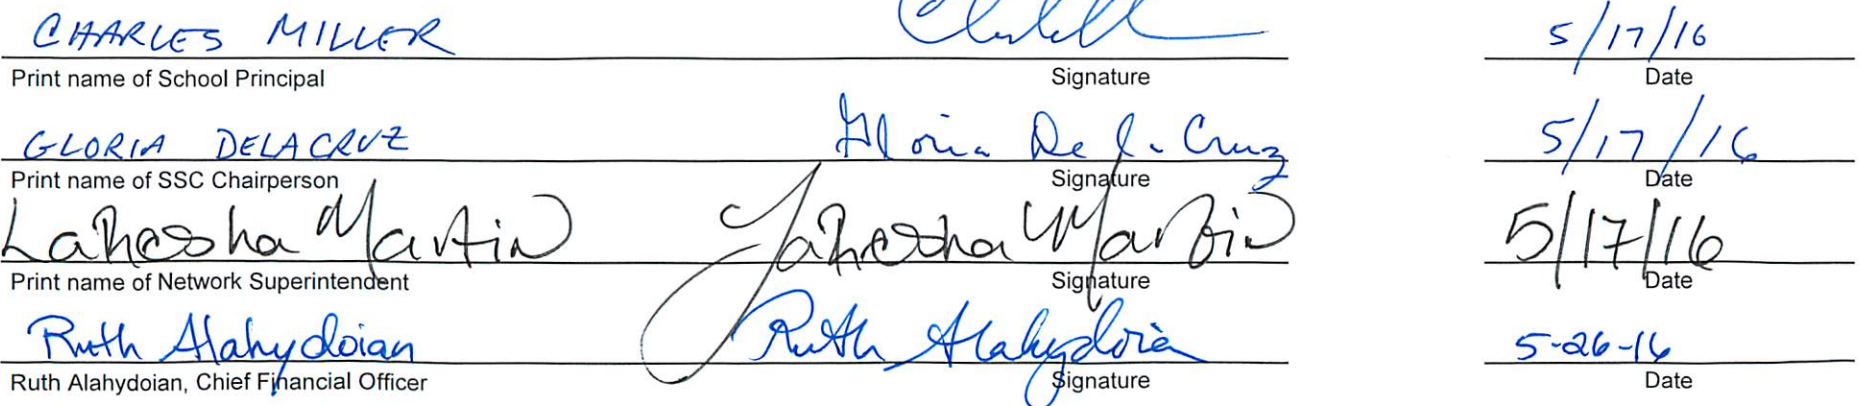 CHARLES MILLER 5/17/16
Print name of School Principal Signature Date
GLORIA DELACRUZ Gloria De la Cruz 5/17/16
Print name of SSC Chairperson Signature Date
LaResha Martin LaResha Martin 5/17/16
Print name of Network Superintendent Signature Date
Ruth Alahydoian Ruth Alahydoian 5-26-16
Ruth Alahydoian, Chief Financial Officer Signature Date